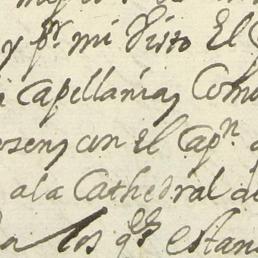 y pr mi visto El
Capellania, Como
con El Capn
a la Cathedral de
los qes estan